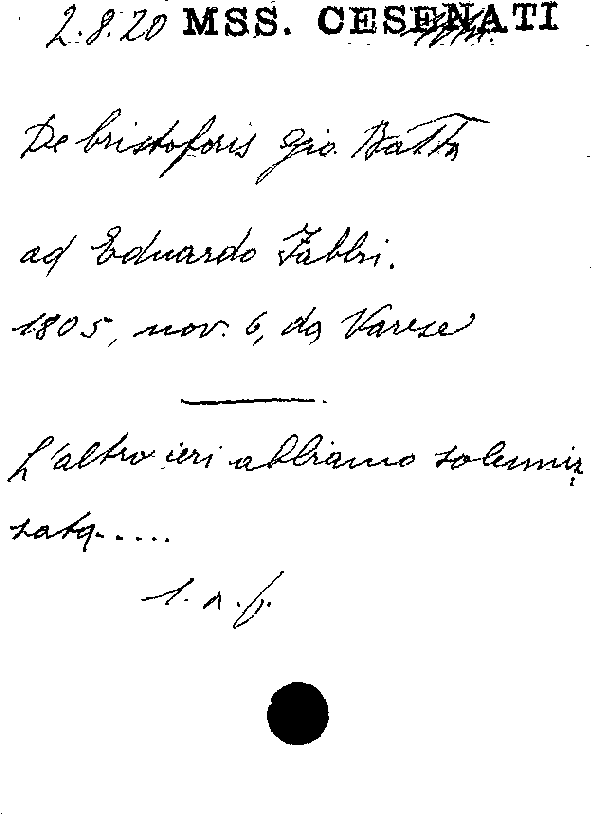 2.8.20 MSS. CESENATI
De Cristoforis Gio. Batta
ad Eduardo Fabbri.
1805, nov. 6, da Varese
L'altro ieri abbiamo solenniz
zata.....
l. a. f.